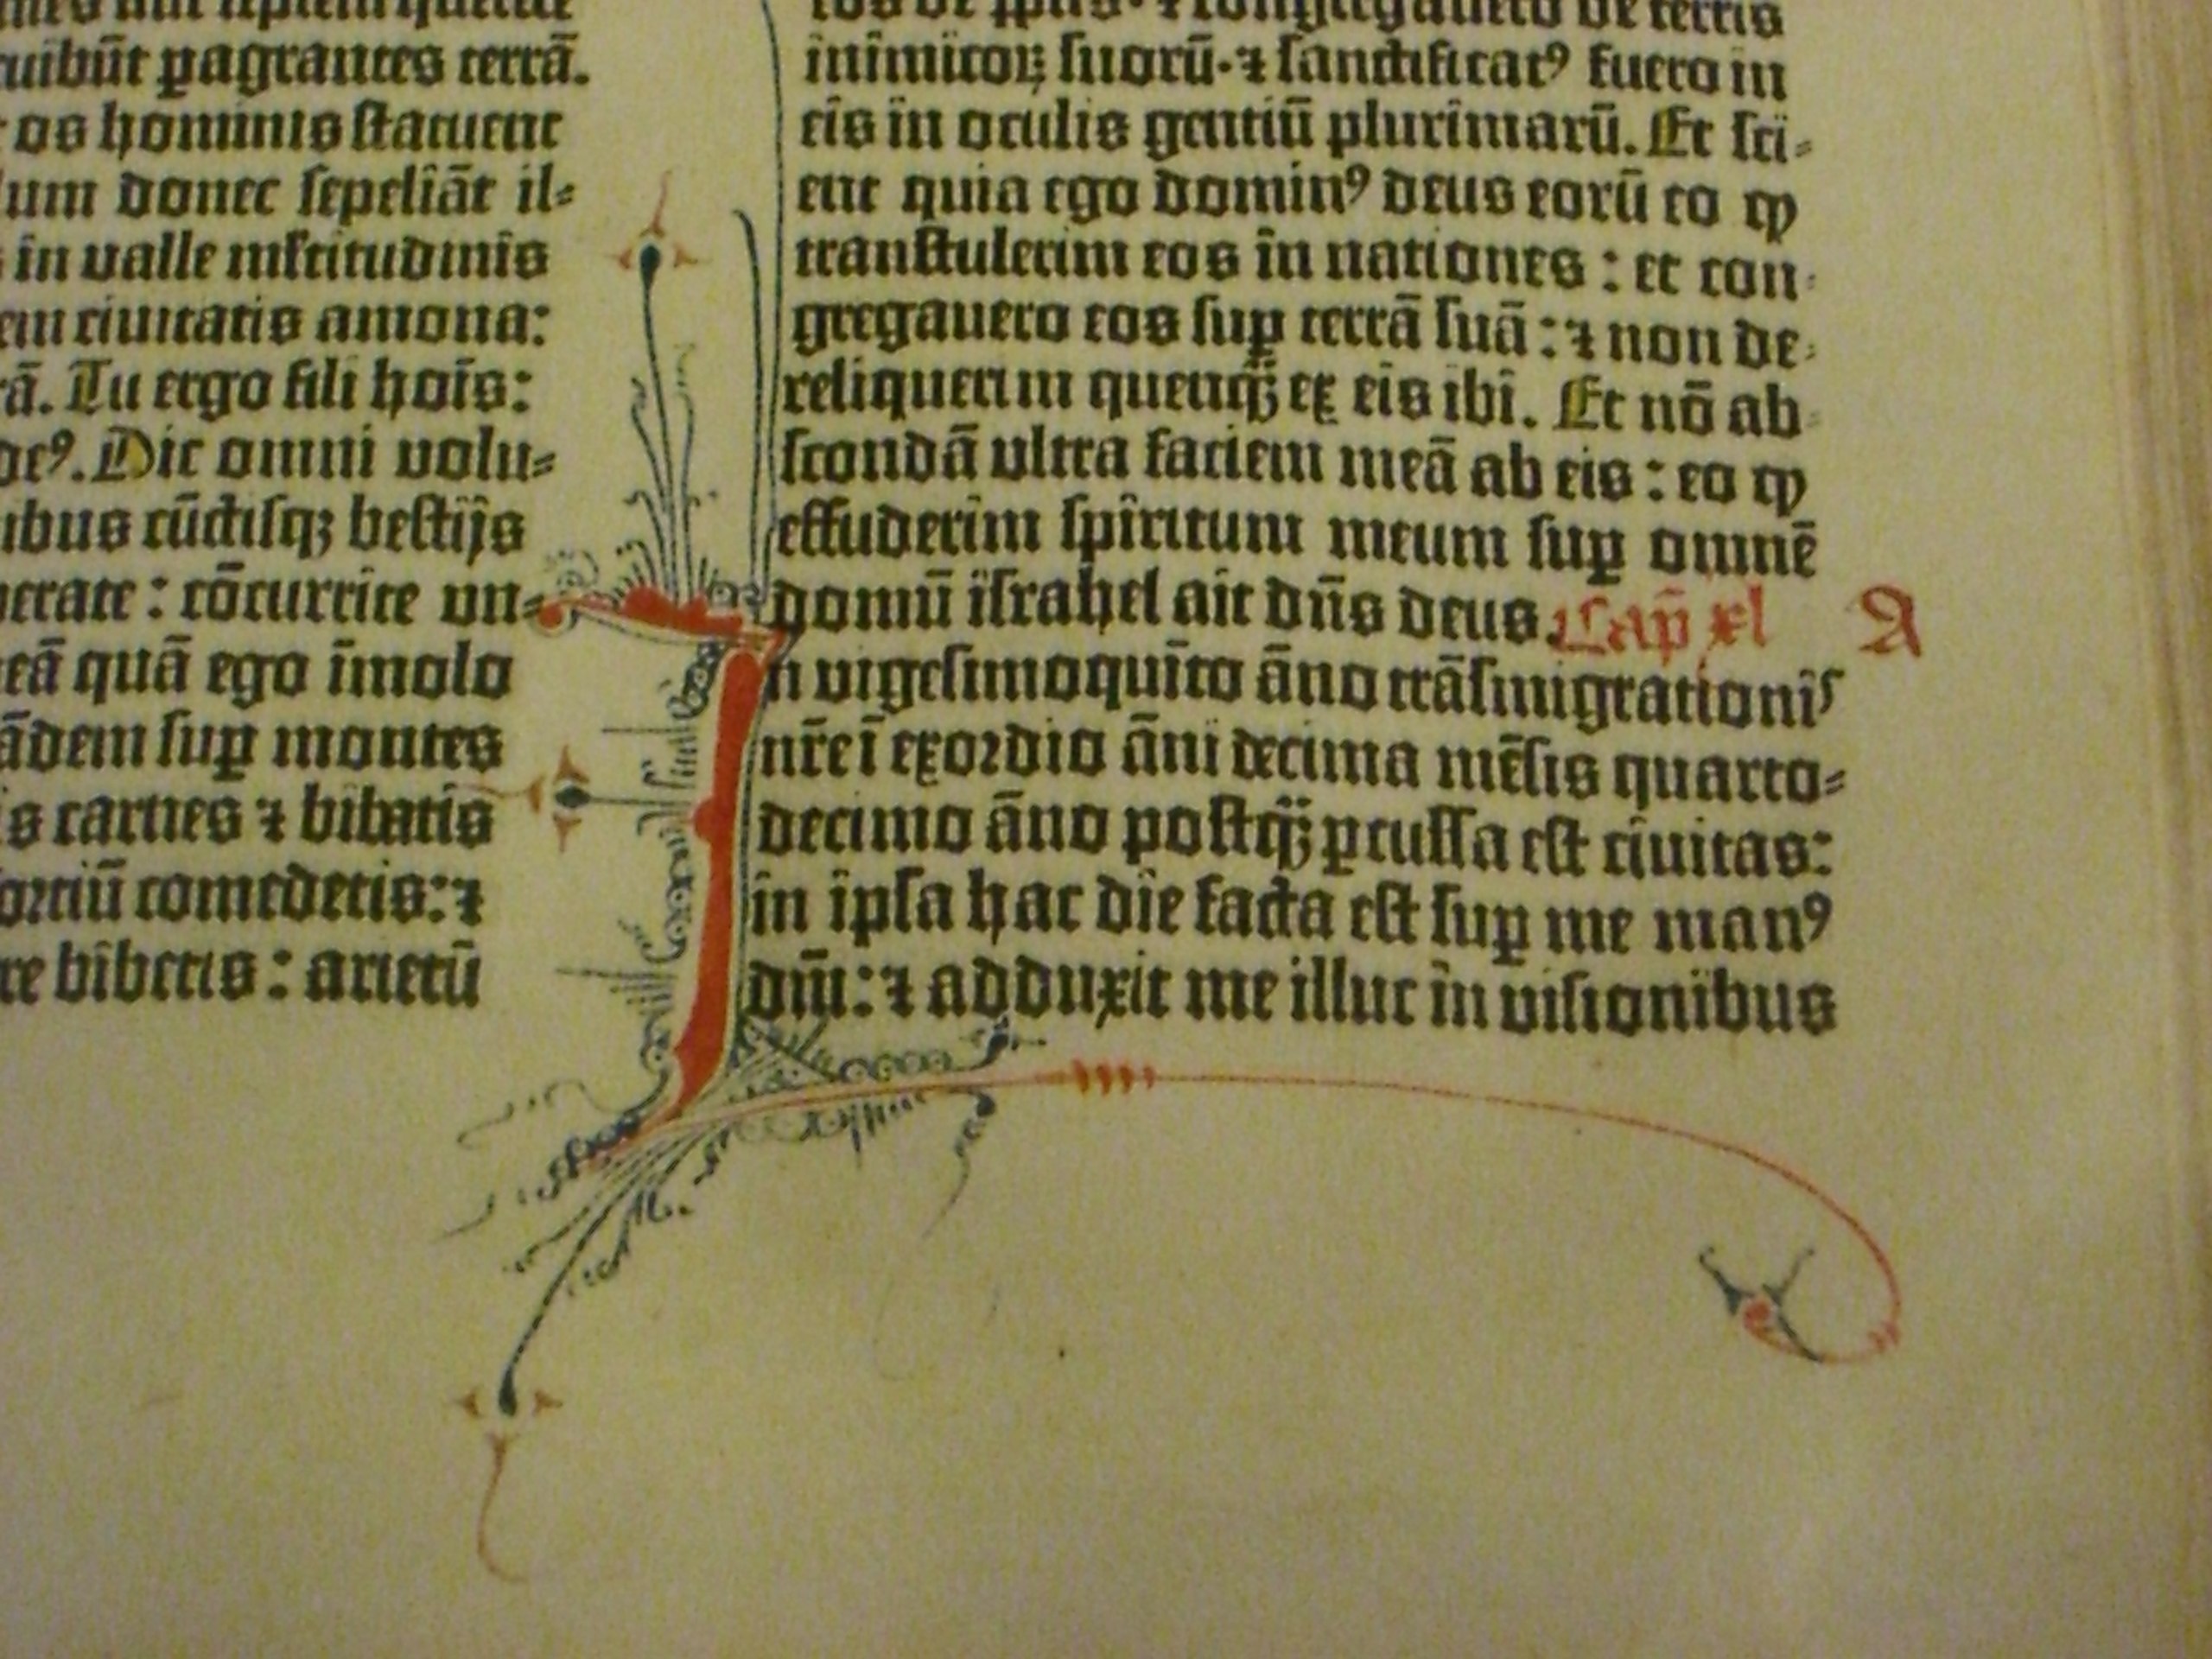 cuibūt ꝑagrantes terrā.
os hominis ſtatuent
um donec ſepeliāt il⸗
in ualle mltitudinis
ciuitatis amona:
ā. Tu ergo fili hoīs:
Dic omni volu⸗
ibus cūctiſqꝫ beſtijs
: cōcurrite vn⸗
eā quā ego īmolo
ādem ſuꝑ montes
s carnes ⁊ bibatis
comedetis: ⁊
bibetis : arietū
⁊ congregauero de terris
inimicoꝝ ſuorū· ⁊ ſanctificatꝰ fuero in
eis in oculis gentiū plurimarū. Et ſci⸗
ent quia ego dominꝰ deus eorū eo ꝙ
tranſtulerim eos in nationes : et con⸗
gregauero eos ſuꝑ terrā ſuā : ⁊ non de⸗
reliquerim quenqꝫ ex eis ibi. Et nō ab⸗
ſcondā ultra faciem meā ab eis : eo ꝙ
effuderim ſpiritum meum ſuꝑ omnē
domū iſrahel ait dn̄s deus. Cap̄ xl A
In vigeſimoquīto āno trāſmigrationis
nr̄e ī exordio āni decima mēſis quarto⸗
decimo āno poſtqꝫ ꝑcuſſa eſt ciuitas:
in ipſa hac die facta eſt ſuꝑ me manꝰ
dn̄i : ⁊ adduxit me illuc in viſionibus